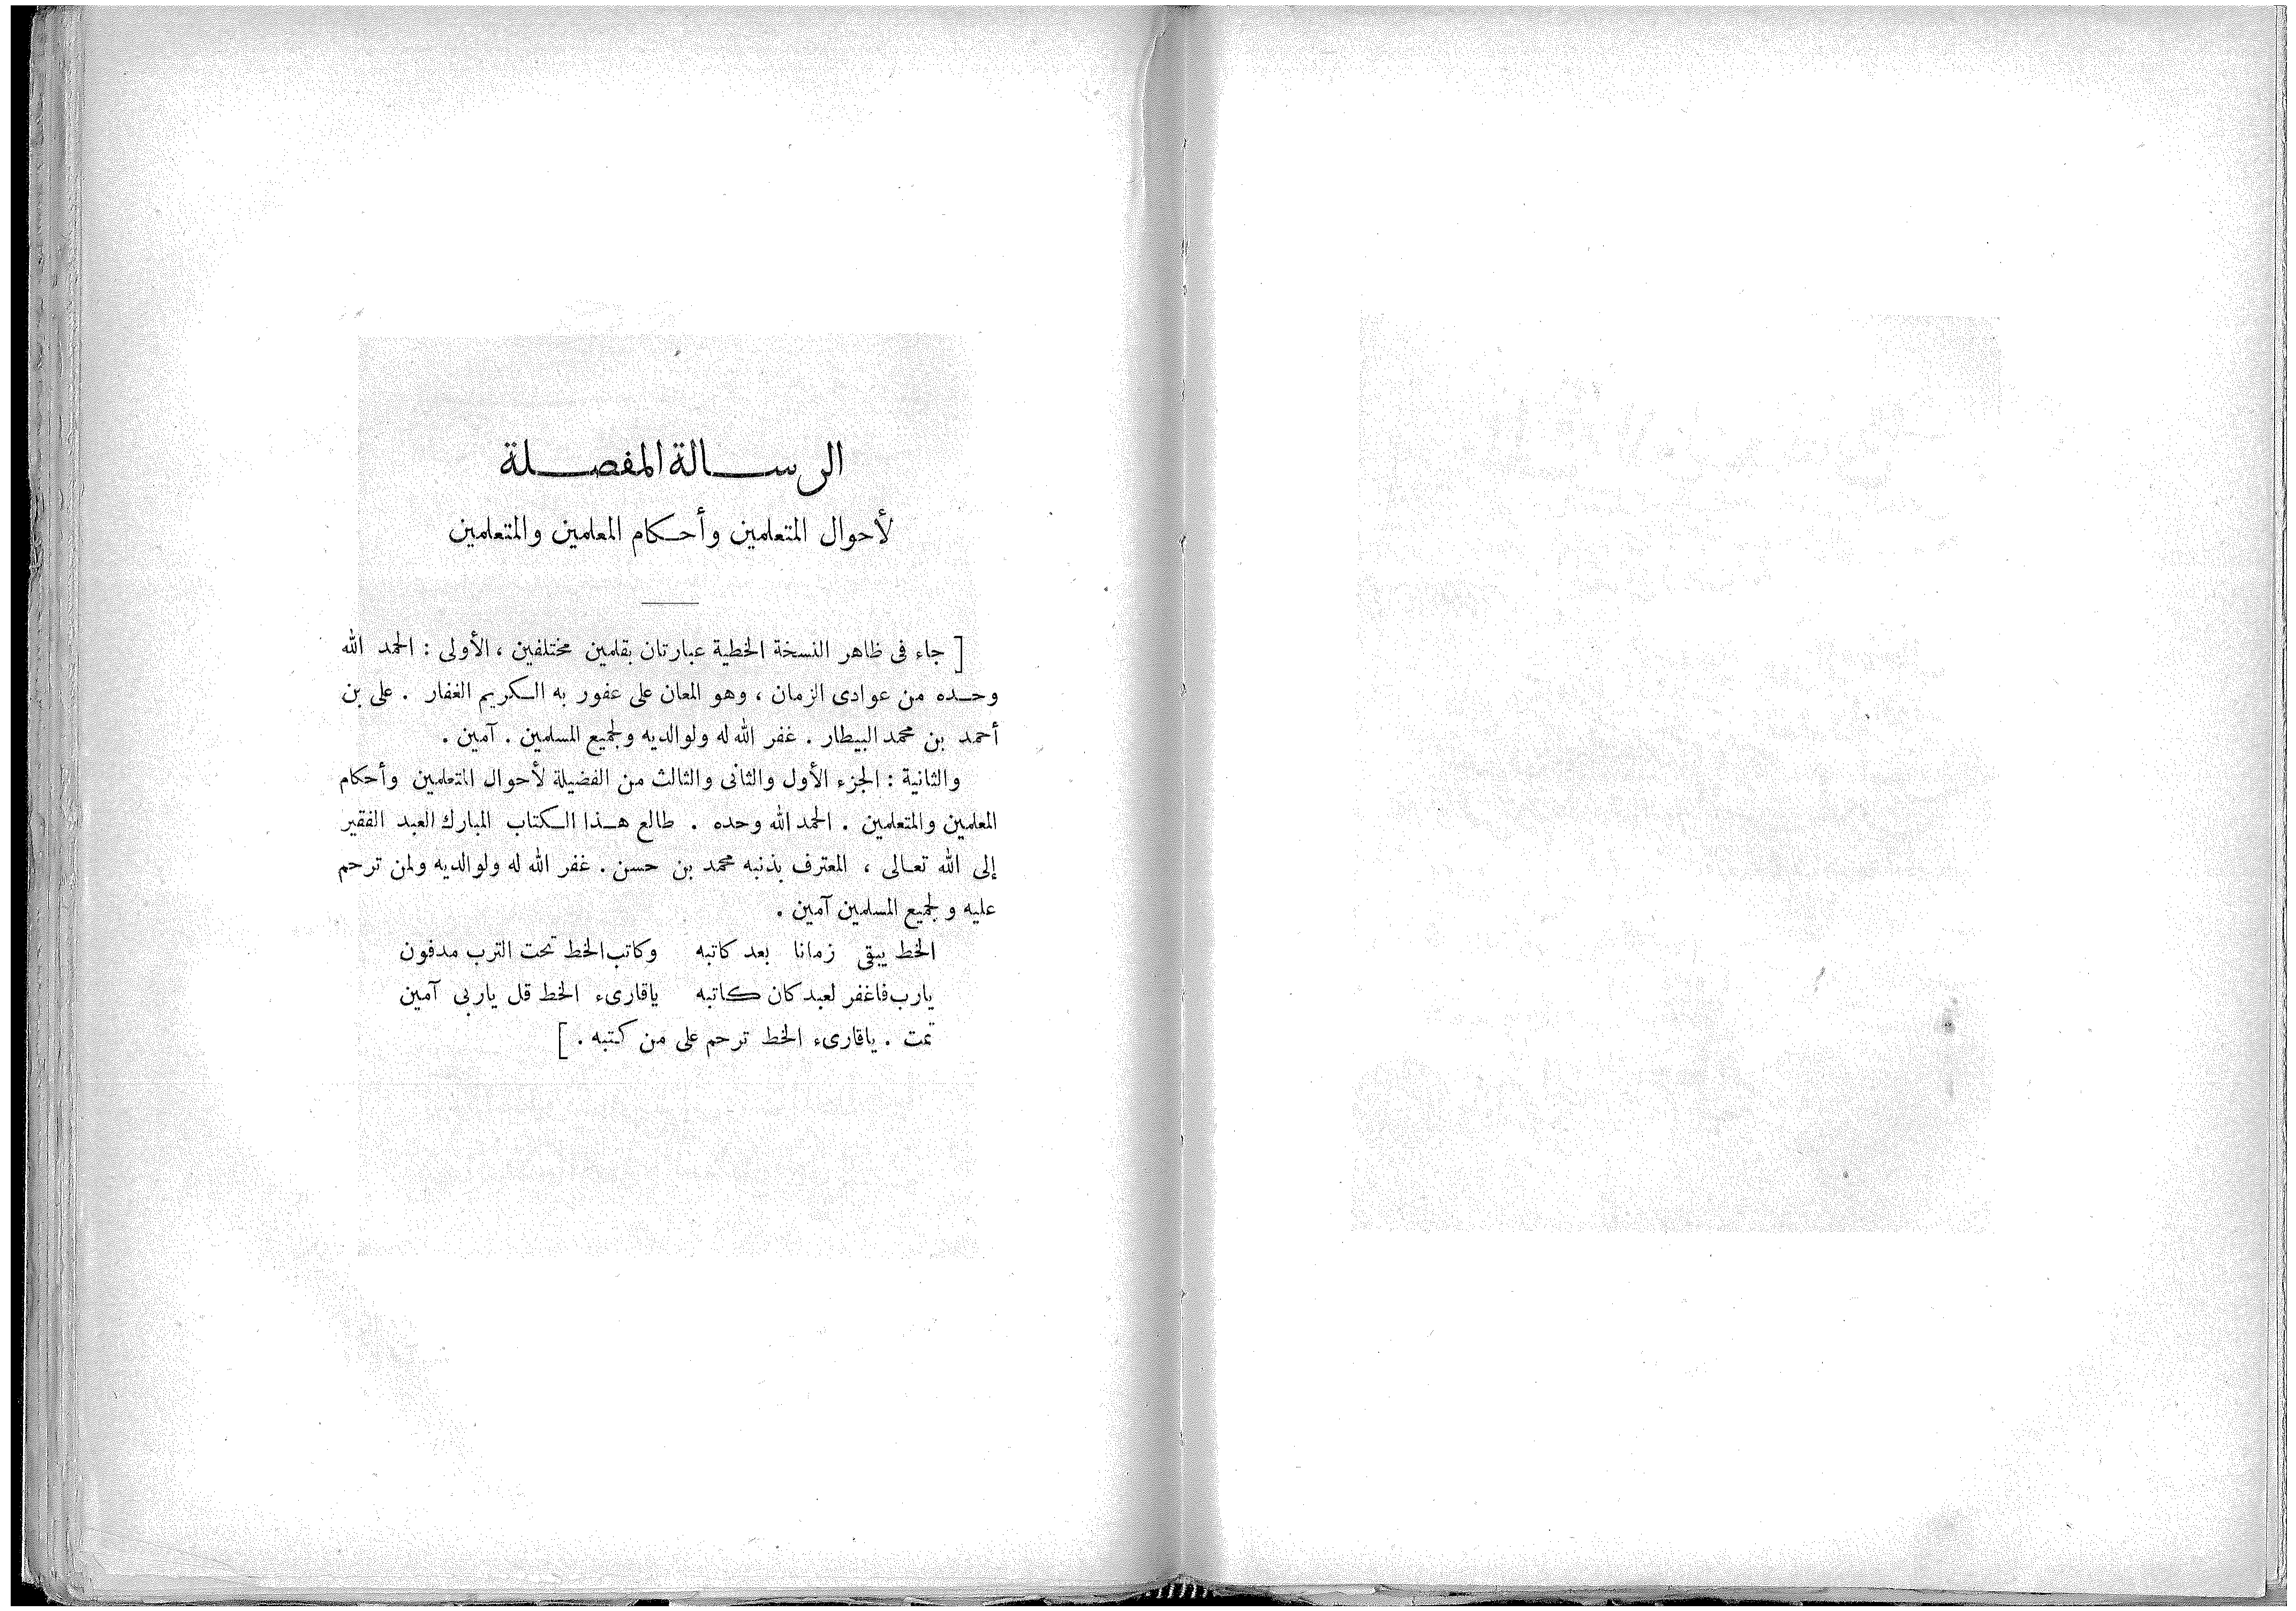 الرسالة المفصلة
لأحوال المتعلمين وأحكام المعلمين والمتعلمين
[ جاء فى ظاهر النسخة الخطية عبارتان بقلمين مختلفين ، الأولى : الحمد الله
وحده من عوادى الزمان ، وهو المعان على عفور به الكريم الغفار . على بن
أحمد بن محمد البيطار . غفر الله له ولوالديه ولجميع المسلمين . آمين .
والثانية : الجزء الأول والثانى والثالث من الفضيلة لأحوال المتعلمين وأحكام
المعلمين والمتعلمين . الحمد الله وحده . طالع هذا الكتاب المبارك العبد الفقير
إلى الله تعالى ، المعترف بذنبه محمد بن حسن . غفر الله له ولوالديه ولمن ترحم
عليه ولجميع المسلمين آمين .
الخط يبقى زمانا بعد كاتبه وكاتب الخط تحت الترب مدفون
يارب فاغفر لعبد كان كاتبه ياقارىء الخط قل ياربى آمين
تمت . ياقارىء الخط ترحم على من كتبه . ]